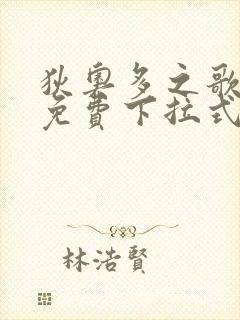 狄奧多之歌
免費下拉式
林浩賢